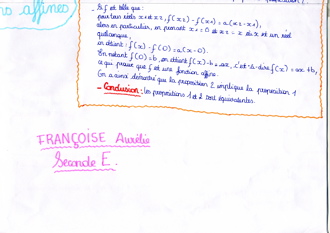 ns affines
- Si f est telle que :
pour tous réels x1 et x2, f(x2) - f(x1) = a(x2 - x1),
alors en particulier, en prenant x1 = 0 et x2 = x où x est un réel
quelconque,
on obtient : f(x) - f(0) = a(x - 0).
En notant f(0) = b, on obtient f(x) - b = ax, c'est-à-dire f(x) = ax + b,
ce qui prouve que f est une fonction affine.
On a ainsi démontré que la proposition 2 implique la proposition 1
- Conclusion : les propositions 1 et 2 sont équivalentes.
FRANÇOISE Aurélie
Seconde E.